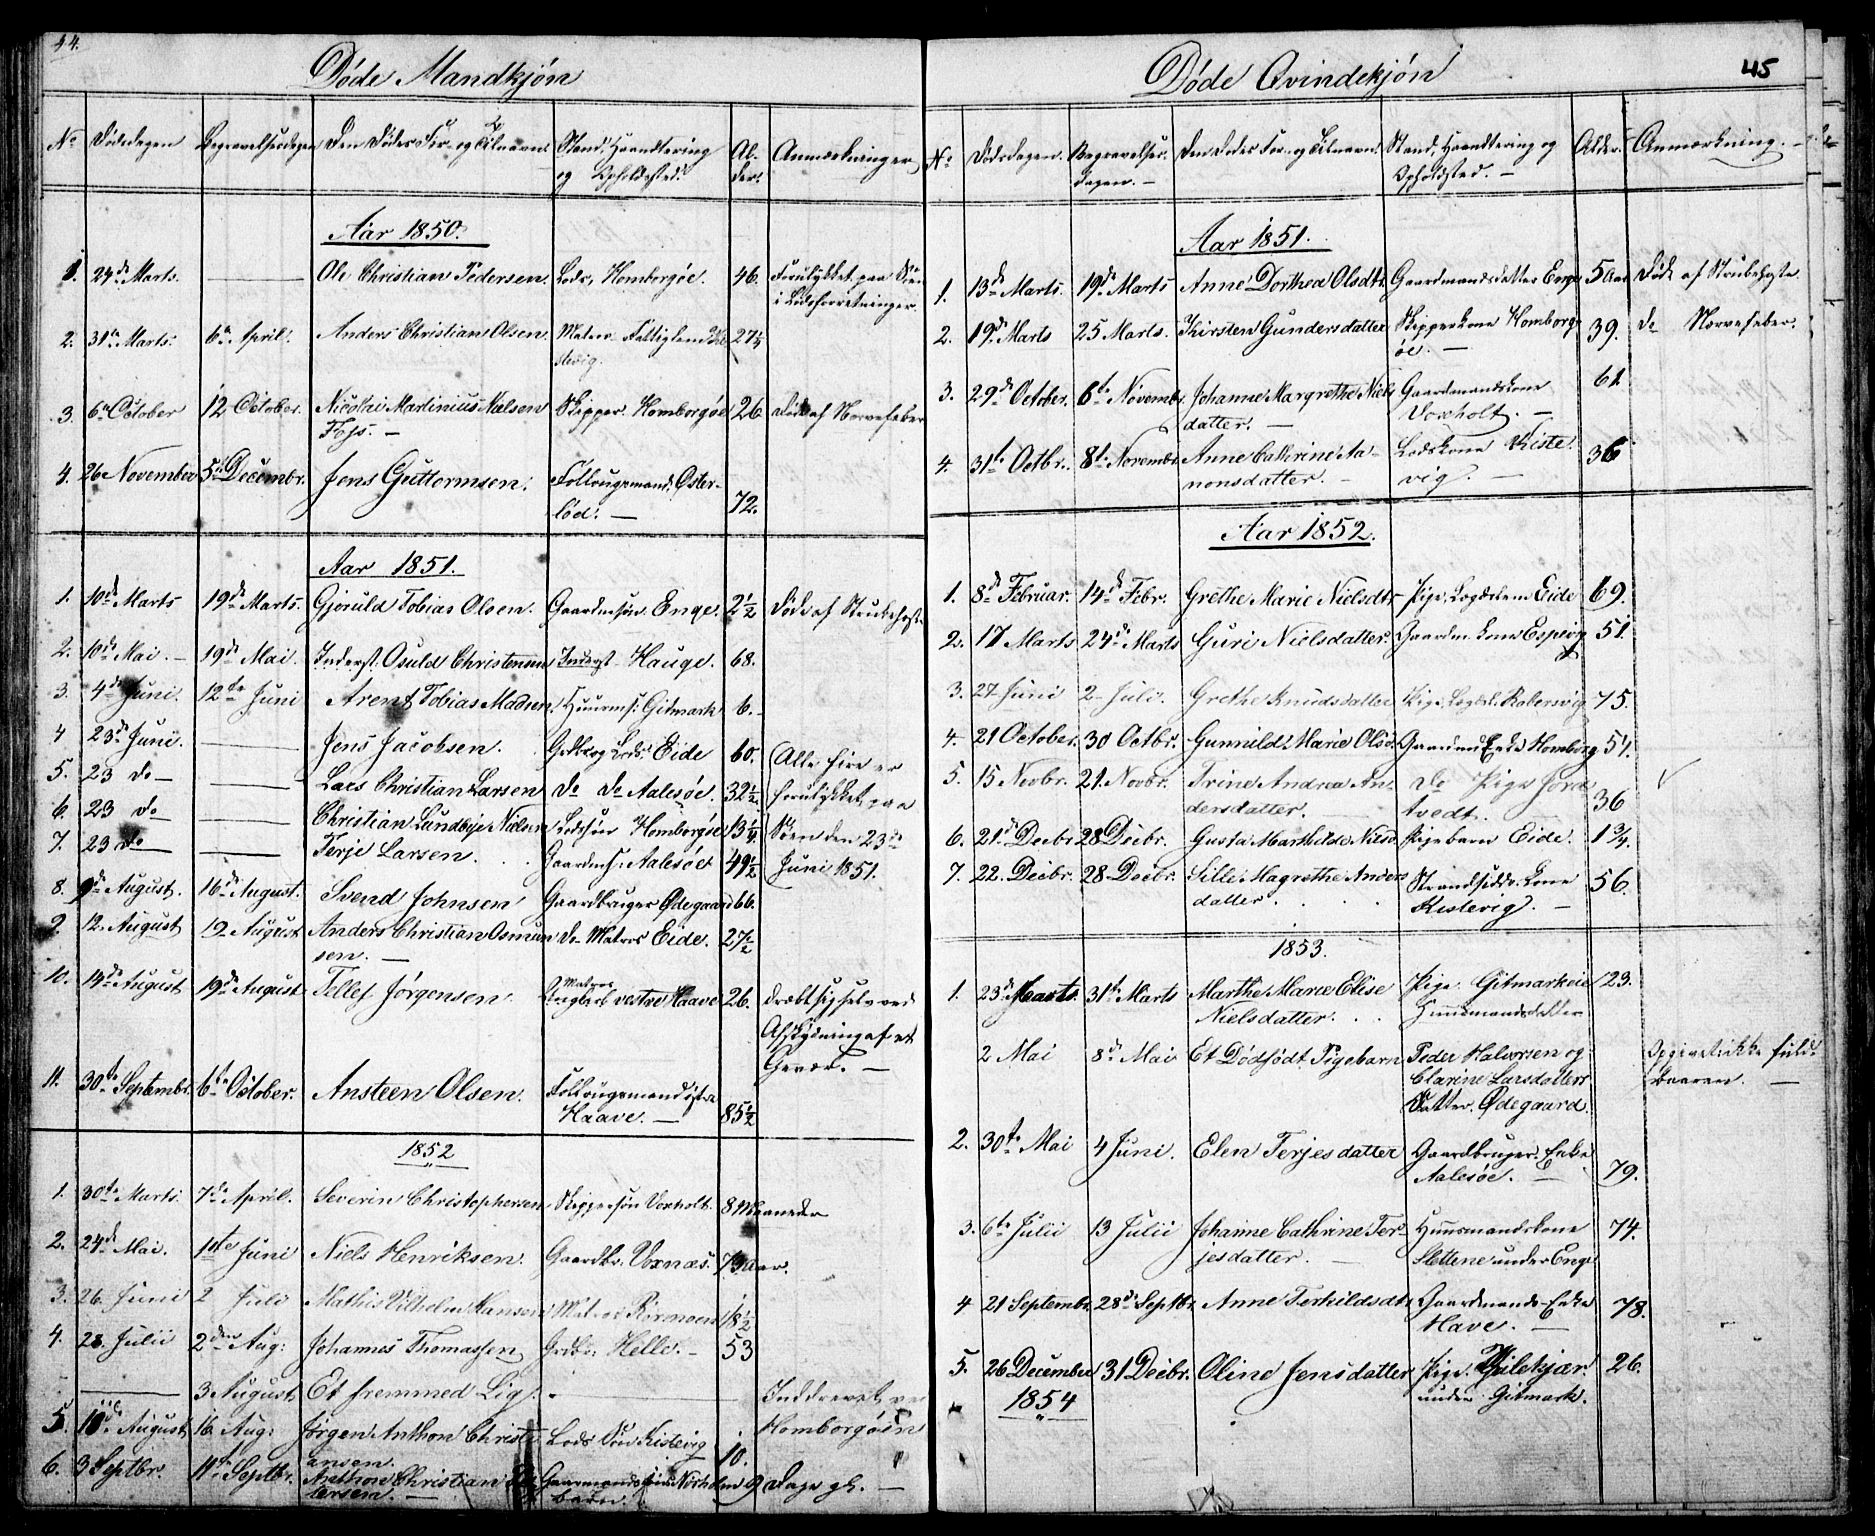 44.
Døde Mandkjøn
No Dødsdagen Begravelsesdagen Den Dødes For- og Tilnavn Stand, Haandtering og Opholdssted. Alder. Anmærkninger
Aar 1850.
1. 24de Marts. — Ole Christian Pedersen. Lods, Homborgøe. 46. Forulykket paa Søen
i Lodsforretninger.
2. 31te Marts. 6te April. Anders Christian Olsen. Matros
3. 6te October 12 October. Nicolai Martinius Nielsen Skipper. Homborgøe 26 Død af Nervefeber
Foss. —
4. 26 November 5te Decembr. Jens Guttormsen. Følougsmand. Øster-
lød. — 72.
Aar 1851.
1. 10de Marts 19de Marts. Gjeruld Tobias Olsen. Gaardms søn. Enge. 2½ Død af Strubehoste
2. 10de Mai. — 19de Mai. Inderst. Osuld Christensen Inderst Hauge. 68.
3. 4de Juni. 12te Juni Arent Tobias Madsen. Huusms: Gitmark 6. —
4 23de Juni. — Jens Jacobsen. Gdbr og Lods. Eide 60. Alle fire er
5. 23 do — — Lars Christian Larsen do do Aalesøe. 32½ forulykket paa
6. 23 do — Christian Lundbye Nielsen Lodssøn Homborgøe 13¼ Søen den 23de
7. 23 do — Terje Larsen. Gaardms: Aalesøe 49½ Juni 1851.
8. 9de August. 16de August. Svend Johnsen Gaardbruger Ødegaard 66.
9. 12. August 19 August Anders Christian Osmun do Matros Eide. 27½
sen. —
10. 14de August 19de August Tellef Jørgensen Matros
Ungkarl vestre Haave 26. dræbt sig selv ved
Afskydning af et
Gevær. —
11. 30te Septembr. 6te October. Ansteen Olsen. Følougsmand østre
Haave. — 85½
1852
1. 30te Marts. 7de April. Severin Christophersen Skippersøn Voxholt. 8 Maaneder
2. 24de Mai. 1ste Juni Niels Henriksen. Gaardbr. Voxnæs. 73 Aar.
3. 26. Juni 2 Juli Mathis Vilhelm Hansen Matros 18½
4. 28. Julii 2den Aug: Johannes Thomassen Grdbr: Helle. — 53
— 3 August Et fremmed Lig. — Inddrevet ved
5. 10de August 16. Aug: Jørgen Anthon Christi Lods Søn Kistevig 10. Homborgøen
ansen.
6. 3 Septbr. 11te Septbr. Anthon Christian
tersen. — barn. 9 Dage gl. —
45
Døde Qvindekjøn
No Dødsdagen. Begravelses-
dagen. — Den Dødes For- og Tilnavn. Stand, Haandtering og
Opholdssted. — Alder. Anmærkning. —
Aar 1851.
1. 13de Marts. 19de Marts Anne Dorthea Olsdtr. Gaardmandsdatter Enge 5 Aar Død af Strubehoste
2. 19de Marts 25 Marts. Kirsten Gundersdatter Skipperkone Homborg-
øe. — 39. do Nervefeber.
3. 29de October. 6te Novembr. Johanne Margrethe Niels Gaardmandskone 61
datter. — Voxholt. —
4. 31te Octbr. 8de Novembr. Anne Cathrine Aa- Lodskone Kiste- 36
nonsdatter. — vig. —
Aar 1852.
1. 8de Februar. 14de Febr. Grethe Marie Nielsdtr Pige. Lægdslem Eide 69.
2. 17 Marts 24de Marts Guri Nielsdatter. Gaardm. kone Espevig 51.
3. 27 Juni 2 Juli. Grethe Knudsdatter Pige. Lægdsl. 75.
4. 21 October. 30 Octbr. Gunnild Marie Olsd. Gaardmd Enke Homborg 54.
5. 15 Novbr. 21. Novbr. Trine Andrea An- do Pige Jord
dersdatter. tvedt. 36
6. 21de Decbr 28 Decbr. Gusta Marthilde Nilsd. Pigebarn Eide. 1¾.
7. 22. Decbr. 28 Decbr. Sille Magrethe Anders Strandsidder kone 56.
datter. Kistevig. —
1853.
1. 23de Marts. 31te Marts Marthe Marie Elise Pige. Gitmarkeie 23.
Nielsdatter. Huusmandsdatter
2 Mai 8de Mai Et Dødfødt Pigebarn Peder Halvorsen og Opgivet ikke fuld-
Clarine Larsdatters baaren. —
Datter. Ødegaard.
2. 30te Mai 4 Juni. Elen Terjesdatter Gaardbruger Enke
Aalesøe. — 79.
3. 6te Julii 13 Julii Johanne Cathrine Ter- Huusmandskone 74.
jesdatter. — Slettene under Enge
4 21 Septembr. 28de Septbr. Anne Terkildsdtr Gaardmands-Enke 78.
Have. —
5. 26 December 31 Decbr. Oline Jensdatter Pige. Kilekjær. 26.
1854 under Gitmark.